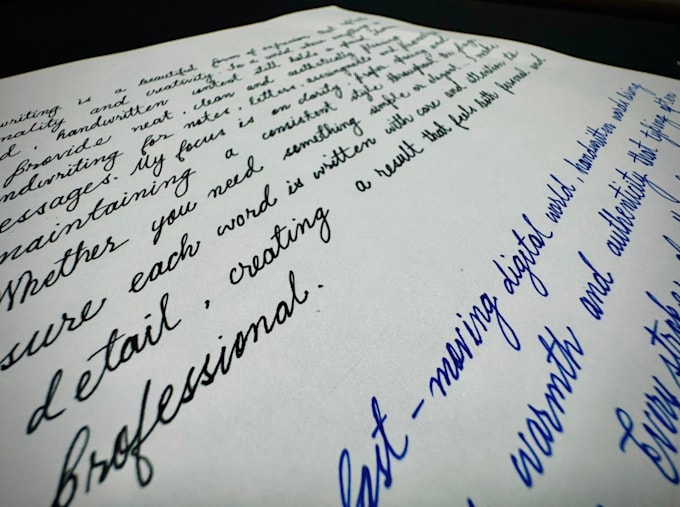 writing is a beautiful form of expression that
nality and creativity. In a world where everything is
d, handwritten content still holds a special charm.
Provide neat, clean and aesthetically pleasing
ndwriting for notes, letters, assignments and personal
essages. My focus is on clarity, proper spacing and
maintaining a consistent style throughout the page.
Whether you need something simple or elegant, I make
sure each word is written with care and attention to
detail, creating a result that feels both personal and
Professional.
fast-moving digital world, handwritten words bring
warmth and authenticity that typing often
Every stroke